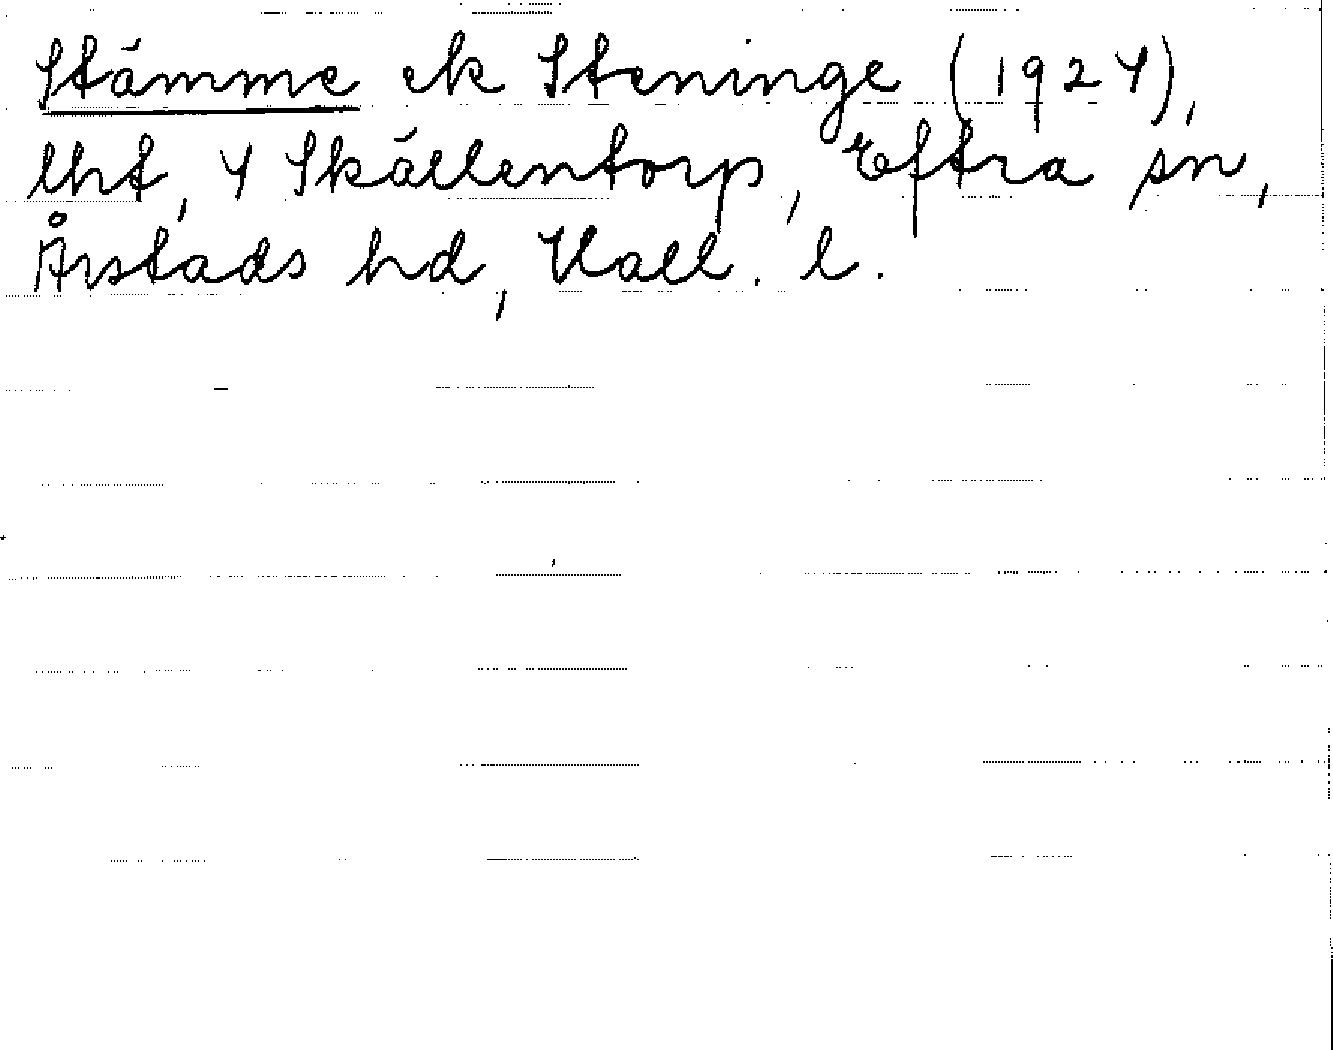 Stämme ek Steninge (1924),
lht, 4 Skällentorp, Eftra sn,
Årstads hd, Hall. l.